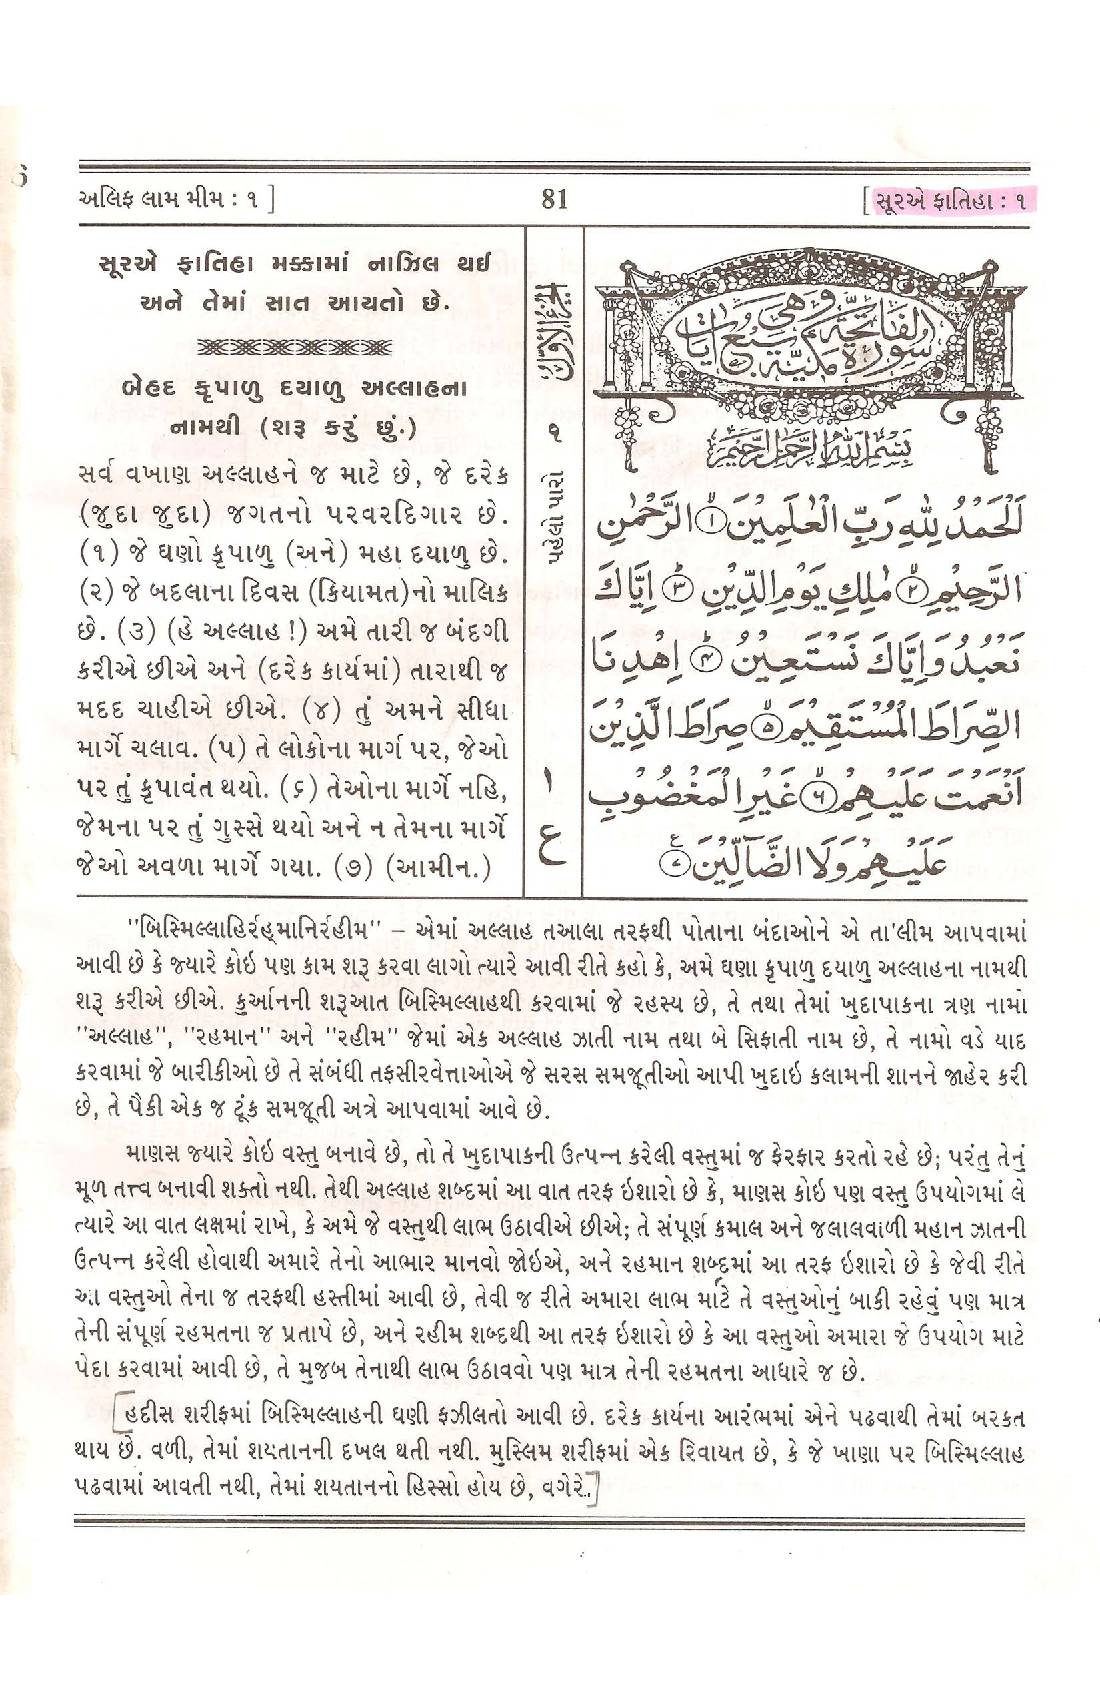 અલિફ લામ મીમ : ૧ ]
81
[ સૂરએ ફાતિહા : ૧
સૂરએ ફાતિહા મક્કામાં નાઝિલ થઈ
અને તેમાં સાત આયતો છે.
બેહદ કૃપાળુ દયાળુ અલ્લાહના
નામથી (શરૂ કરું છું.)
સર્વ વખાણ અલ્લાહને જ માટે છે, જે દરેક
(જુદા જુદા) જગતનો પરવરદિગાર છે.
(૧) જે ઘણો કૃપાળુ (અને) મહા દયાળુ છે.
(૨) જે બદલાના દિવસ (કિયામત)નો માલિક
છે. (૩) (હે અલ્લાહ !) અમે તારી જ બંદગી
કરીએ છીએ અને (દરેક કાર્યમાં) તારાથી જ
મદદ ચાહીએ છીએ. (૪) તું અમને સીધા
માર્ગે ચલાવ. (૫) તે લોકોના માર્ગ પર, જેઓ
પર તું કૃપાવંત થયો. (૬) તેઓના માર્ગે નહિ,
જેમના પર તું ગુસ્સે થયો અને ન તેમના માર્ગે
જેઓ અવળા માર્ગે ગયા. (૭) (આમીન.)
الجزء الاول
૧
પહેલો પારો
١
ع
سورة الفاتحة مكية وهي سبع آيات
بِسْمِ اللهِ الرَّحْمٰنِ الرَّحِيْمِ
اَلْحَمْدُ لِلّٰهِ رَبِّ الْعٰلَمِيْنَ ۙ۝۱ الرَّحْمٰنِ
الرَّحِيْمِ ۙ۝۲ مٰلِكِ يَوْمِ الدِّيْنِ ؕ۝۳ اِيَّاكَ
نَعْبُدُ وَاِيَّاكَ نَسْتَعِيْنُ ؕ۝۴ اِهْدِنَا
الصِّرَاطَ الْمُسْتَقِيْمَ ۙ۝۵ صِرَاطَ الَّذِيْنَ
اَنْعَمْتَ عَلَيْهِمْ ۙ۝۶ غَيْرِ الْمَغْضُوْبِ
عَلَيْهِمْ وَلَا الضَّآلِّيْنَ ۝۷
"બિસ્મિલ્લાહિર્રહ્માનિર્રહીમ" – એમાં અલ્લાહ તઆલા તરફથી પોતાના બંદાઓને એ તા'લીમ આપવામાં
આવી છે કે જ્યારે કોઇ પણ કામ શરૂ કરવા લાગો ત્યારે આવી રીતે કહો કે, અમે ઘણા કૃપાળુ દયાળુ અલ્લાહના નામથી
શરૂ કરીએ છીએ. કુર્આનની શરૂઆત બિસ્મિલ્લાહથી કરવામાં જે રહસ્ય છે, તે તથા તેમાં ખુદાપાકના ત્રણ નામો
"અલ્લાહ", "રહમાન" અને "રહીમ" જેમાં એક અલ્લાહ ઝાતી નામ તથા બે સિફાતી નામ છે, તે નામો વડે યાદ
કરવામાં જે બારીકીઓ છે તે સંબંધી તફસીરવેત્તાઓએ જે સરસ સમજૂતીઓ આપી ખુદાઇ કલામની શાનને જાહેર કરી
છે, તે પૈકી એક જ ટૂંક સમજૂતી અત્રે આપવામાં આવે છે.
માણસ જ્યારે કોઇ વસ્તુ બનાવે છે, તો તે ખુદાપાકની ઉત્પન્ન કરેલી વસ્તુમાં જ ફેરફાર કરતો રહે છે; પરંતુ તેનું
મૂળ તત્ત્વ બનાવી શક્તો નથી. તેથી અલ્લાહ શબ્દમાં આ વાત તરફ ઇશારો છે કે, માણસ કોઇ પણ વસ્તુ ઉપયોગમાં લે
ત્યારે આ વાત લક્ષમાં રાખે, કે અમે જે વસ્તુથી લાભ ઉઠાવીએ છીએ; તે સંપૂર્ણ કમાલ અને જલાલવાળી મહાન ઝાતની
ઉત્પન્ન કરેલી હોવાથી અમારે તેનો આભાર માનવો જોઇએ, અને રહમાન શબ્દમાં આ તરફ ઇશારો છે કે જેવી રીતે
આ વસ્તુઓ તેના જ તરફથી હસ્તીમાં આવી છે, તેવી જ રીતે અમારા લાભ માટે તે વસ્તુઓનું બાકી રહેવું પણ માત્ર
તેની સંપૂર્ણ રહમતના જ પ્રતાપે છે, અને રહીમ શબ્દથી આ તરફ ઇશારો છે કે આ વસ્તુઓ અમારા જે ઉપયોગ માટે
પેદા કરવામાં આવી છે, તે મુજબ તેનાથી લાભ ઉઠાવવો પણ માત્ર તેની રહમતના આધારે જ છે.
હદીસ શરીફમાં બિસ્મિલ્લાહની ઘણી ફઝીલતો આવી છે. દરેક કાર્યના આરંભમાં એને પઢવાથી તેમાં બરકત
થાય છે. વળી, તેમાં શયતાનની દખલ થતી નથી. મુસ્લિમ શરીફમાં એક રિવાયત છે, કે જે ખાણા પર બિસ્મિલ્લાહ
પઢવામાં આવતી નથી, તેમાં શયતાનનો હિસ્સો હોય છે, વગેરે.